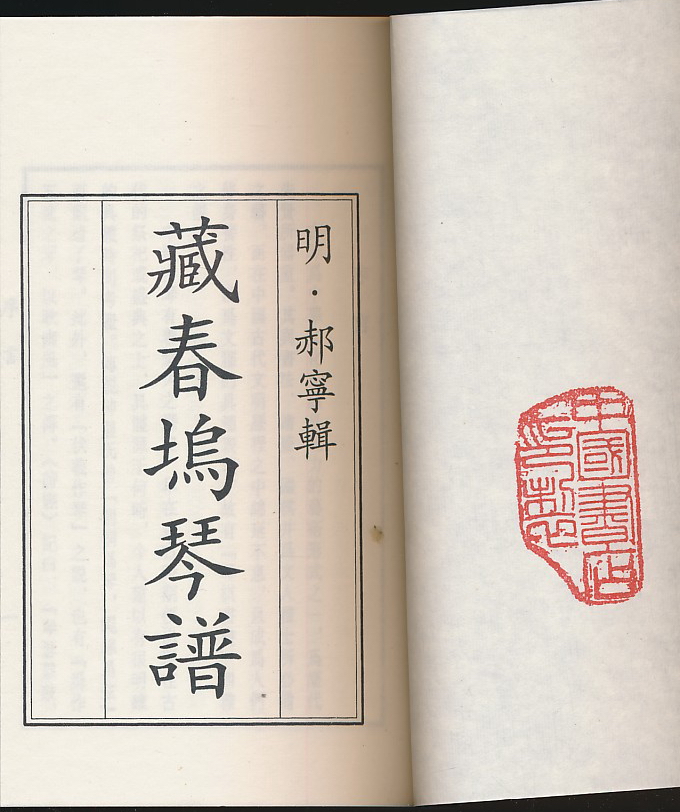 中國書店
印製
明·郝寧輯
藏春塢琴譜